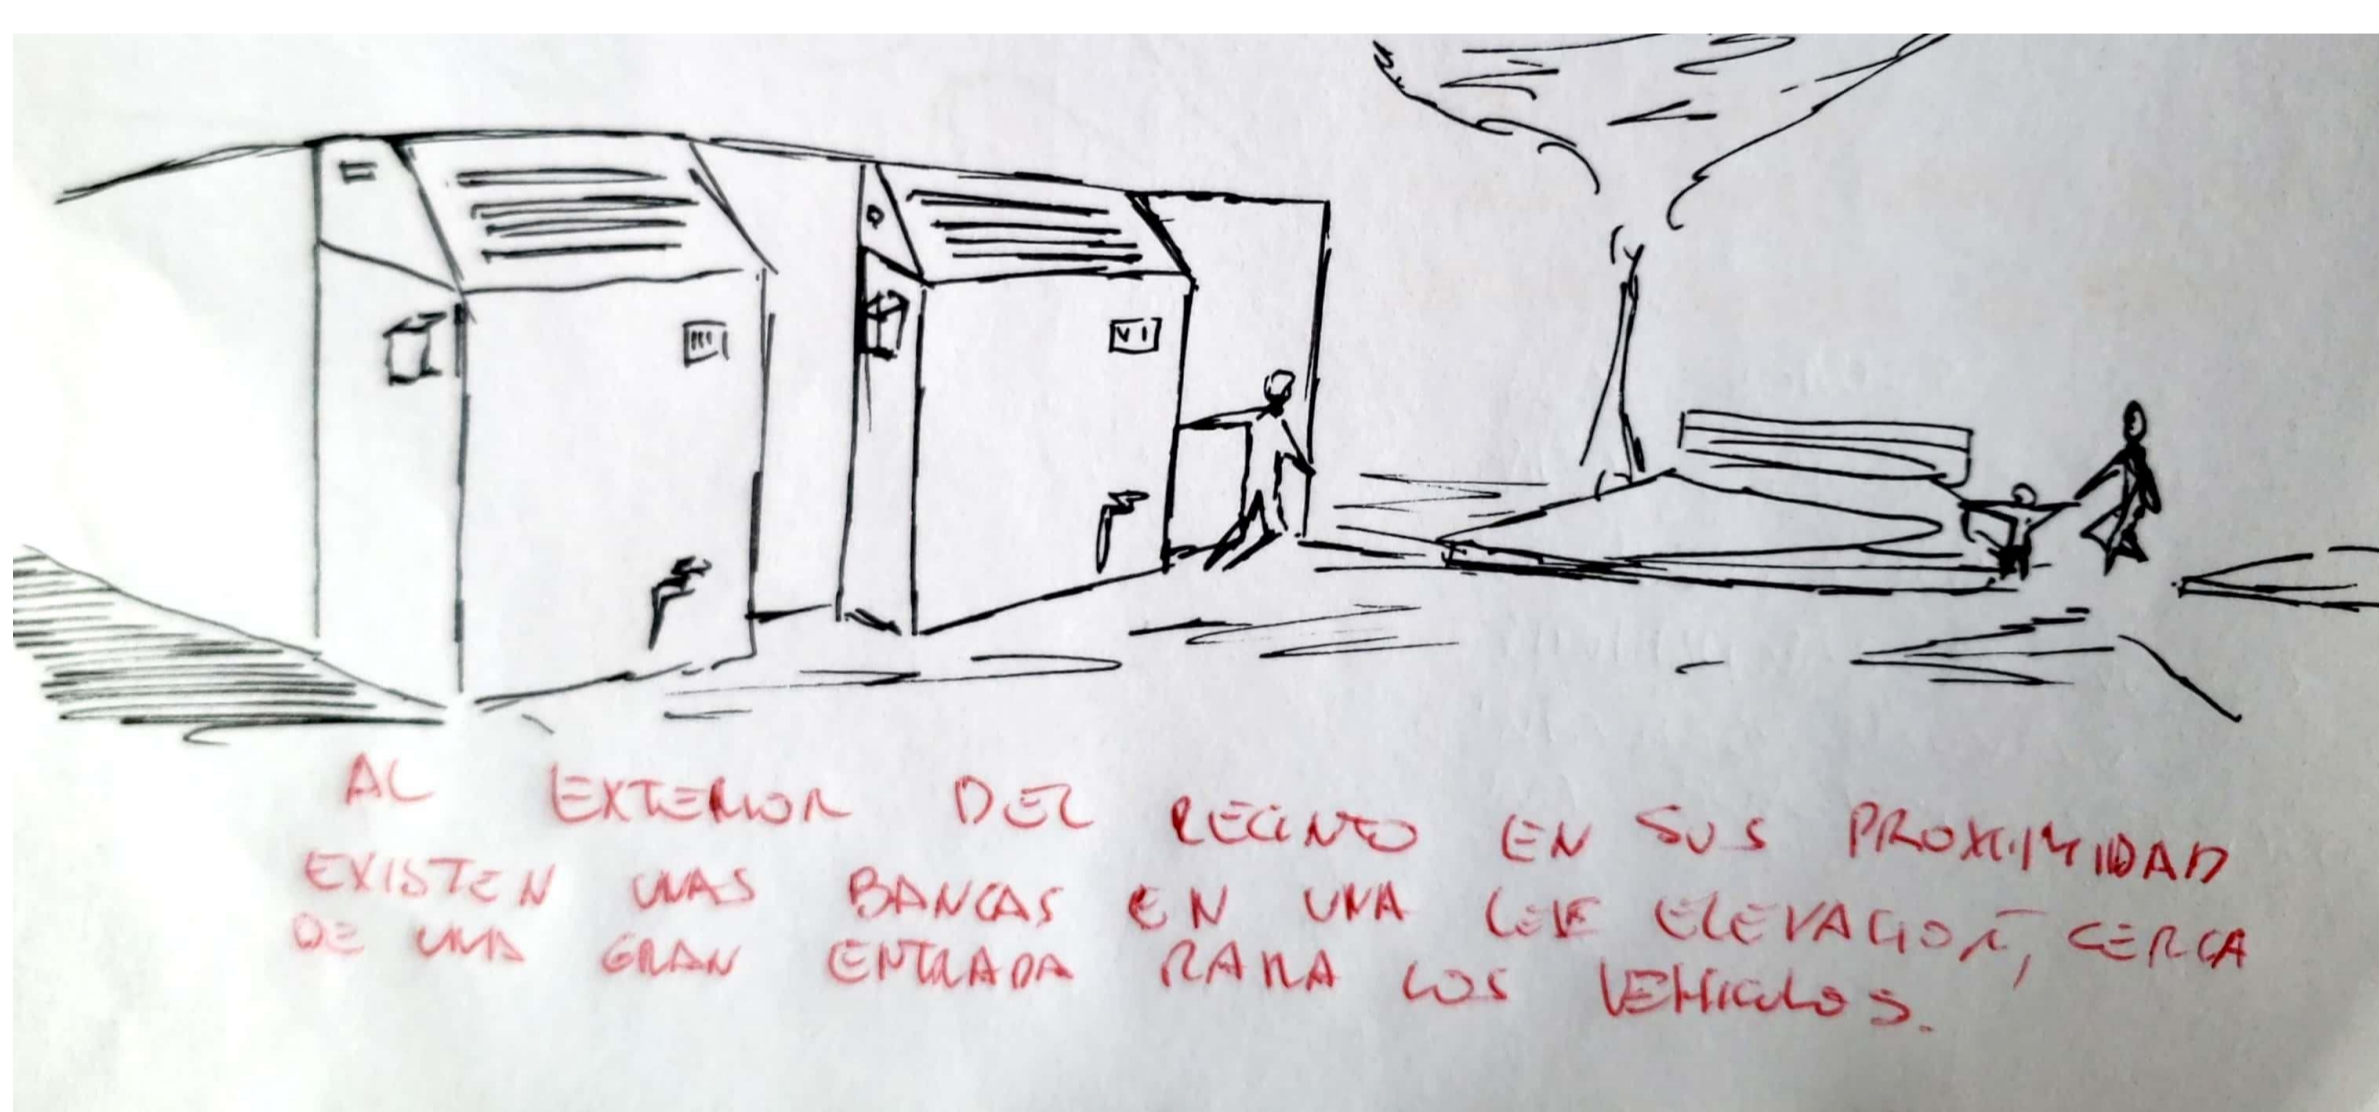 VI
AL EXTERIOR DEL RECINTO EN SUS PROXIMIDAD
EXISTEN UNAS BANCAS EN UNA LEVE ELEVACION, CERCA
DE UNA GRAN ENTRADA PARA LOS VEHICULOS.